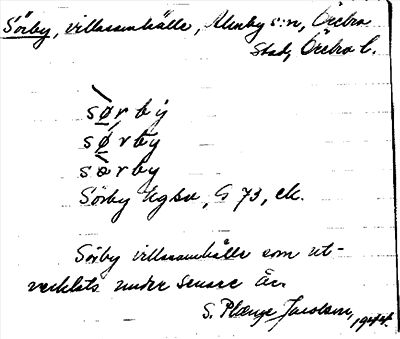 Sörby, villasamhälle, Almby s:n, Örebro
stad, Örebro l.
sø̀rby
sǿrby
sàrby
Sörby Egsk., G 73, ek.
Sörby villasamhälle som ut-
vecklats under senare år.
S. Jacobson, 1944.